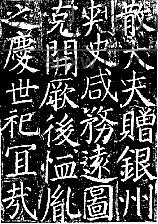 散大夫贈銀州
刺史咸務遠圖
克開厥後恤胤
之慶世祀宜哉